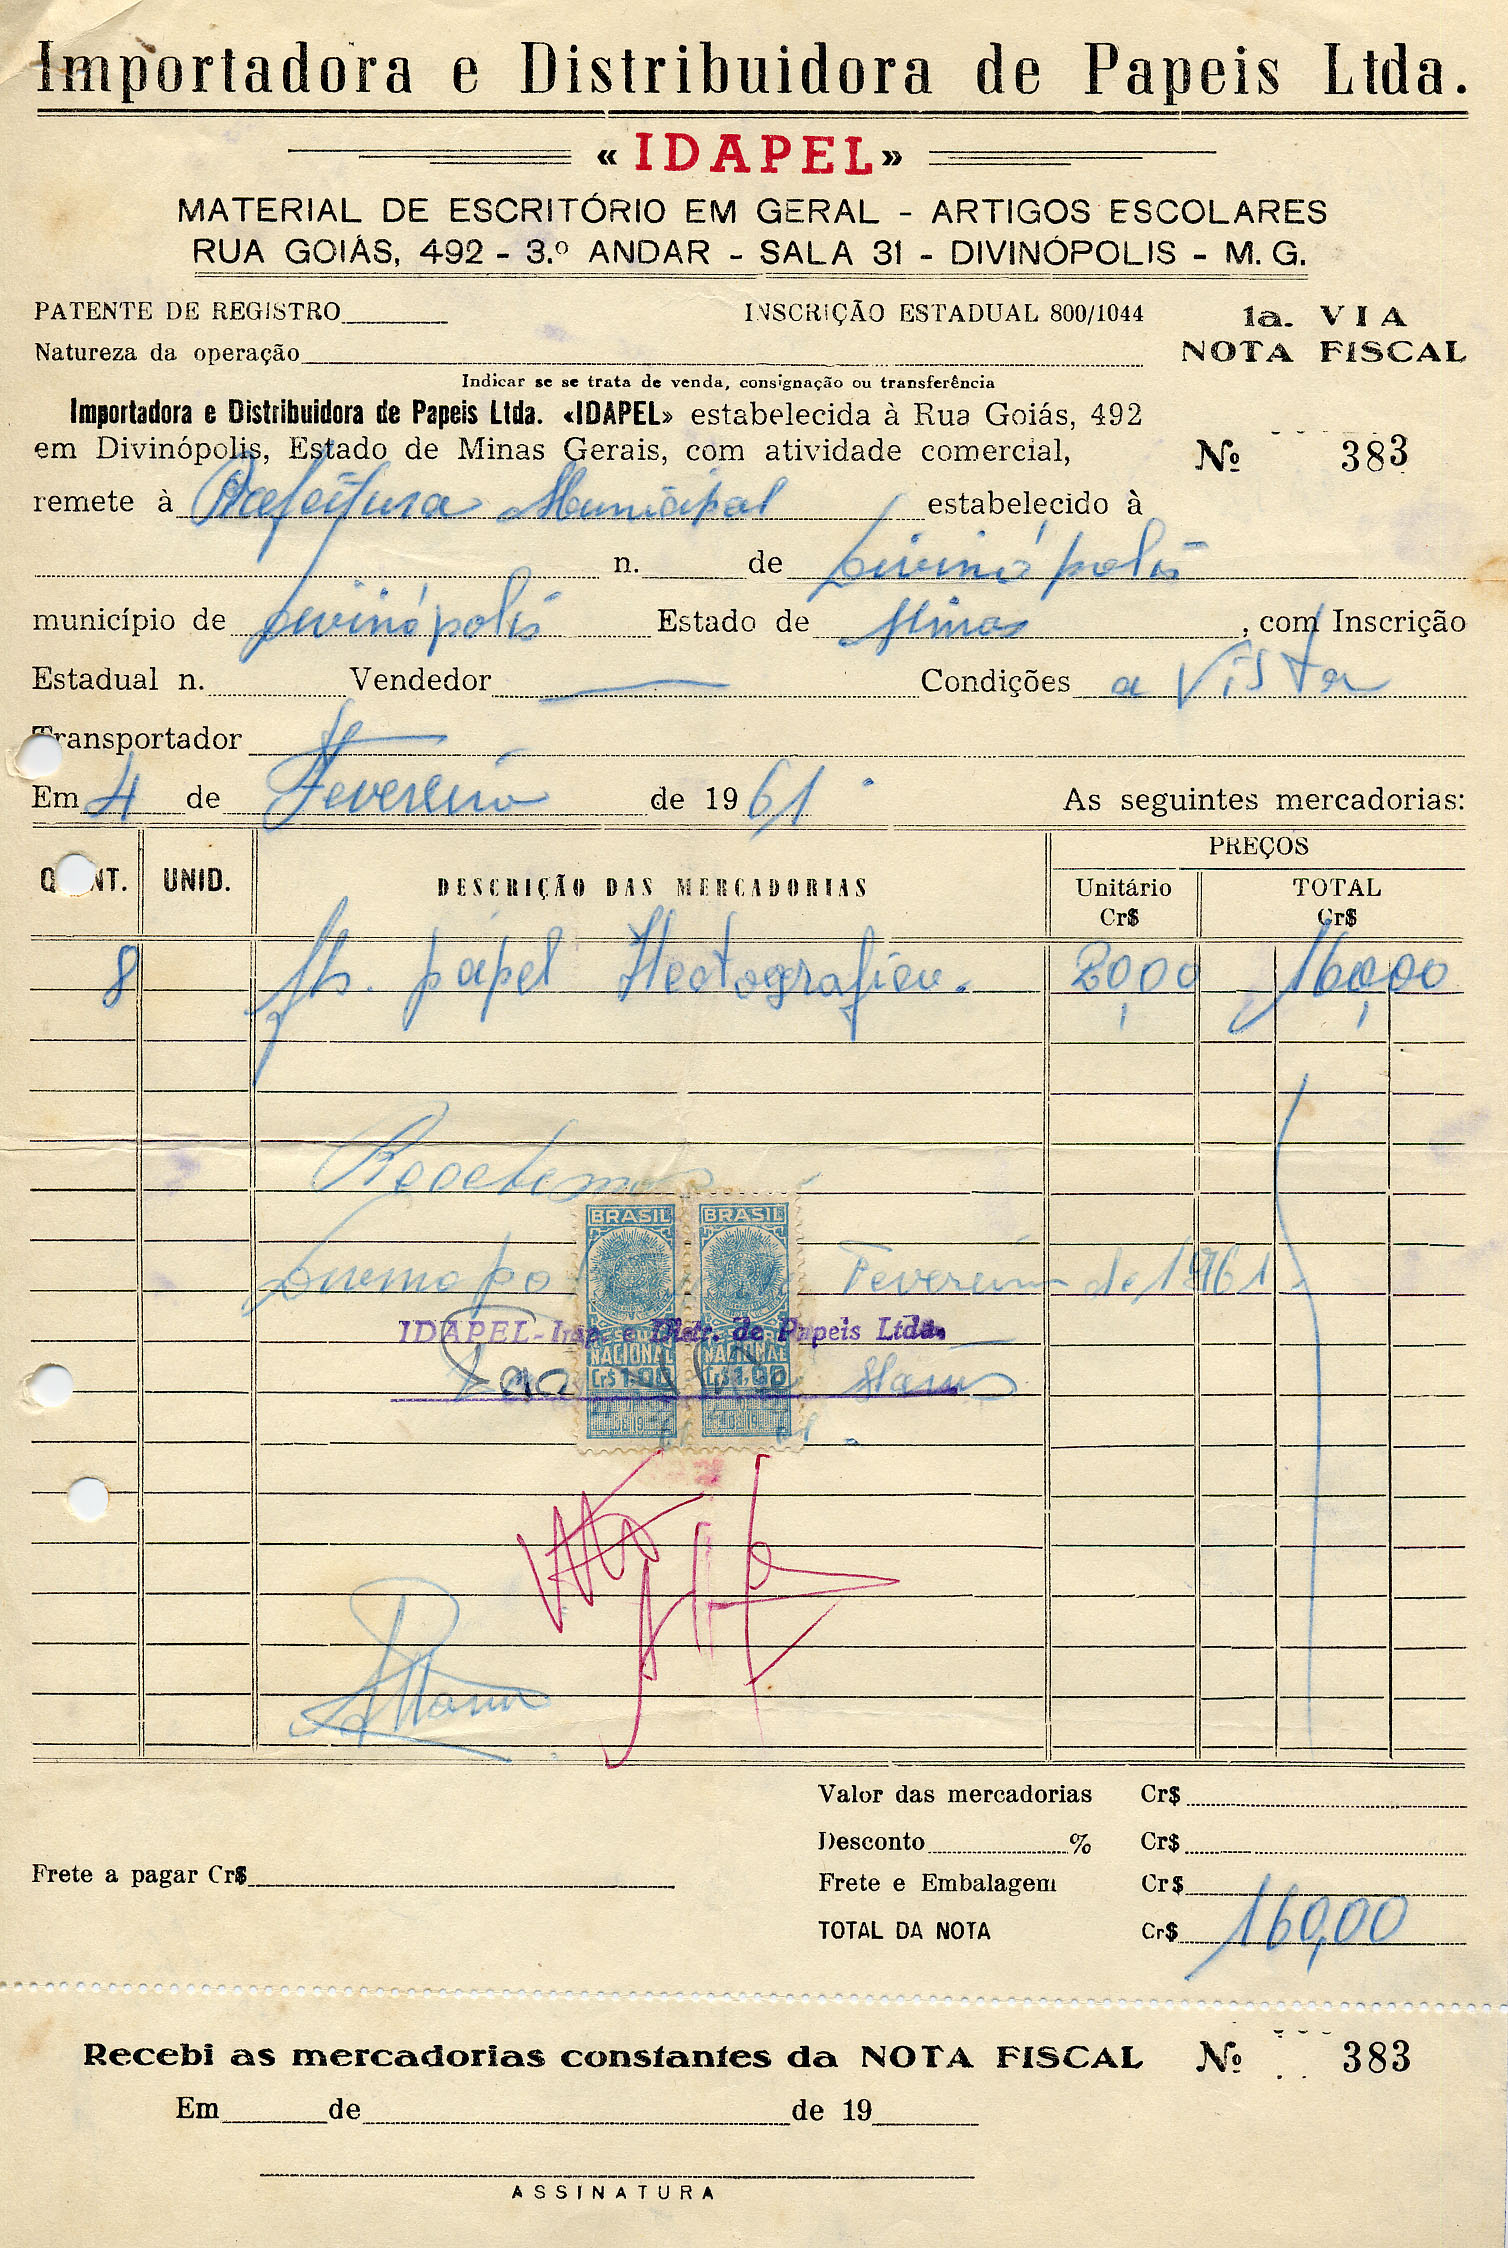 Importadora e Distribuidora de Papeis Ltda.
«IDAPEL»
MATERIAL DE ESCRITÓRIO EM GERAL - ARTIGOS ESCOLARES
RUA GOIÁS, 492 - 3.º ANDAR - SALA 31 - DIVINÓPOLIS - M. G.
PATENTE DE REGISTRO INSCRIÇÃO ESTADUAL 800/1044 1a. VIA
Natureza da operação NOTA FISCAL
Indicar se se trata de venda, consignação ou transferência
Importadora e Distribuidora de Papeis Ltda. «IDAPEL» estabelecida à Rua Goiás, 492
em Divinópolis, Estado de Minas Gerais, com atividade comercial, Nº 383
remete à Prefeitura Municipal estabelecido à
n. de Divinópolis
município de Divinópolis Estado de Minas, com Inscrição
Estadual n. Vendedor Condições a Vista
Transportador
Em 4 de Fevereiro de 1961 As seguintes mercadorias:
PREÇOS
QUANT. UNID. DESCRIÇÃO DAS MERCADORIAS Unitário TOTAL
Cr$ Cr$
8 fls. papel Hectografico. 20,00 160,00
Recebemos
Fevereiro de 1961
BRASIL BRASIL
IDAPEL-Imp. e Distr. de Papeis Ltda.
NACIONAL NACIONAL
Cr$ 1,00 Cr$ 1,00
Valor das mercadorias Cr$
Desconto % Cr$
Frete a pagar Cr$
Frete e Embalagem Cr$
TOTAL DA NOTA Cr$ 160,00
Recebi as mercadorias constantes da NOTA FISCAL Nº 383
Em de de 19
ASSINATURA